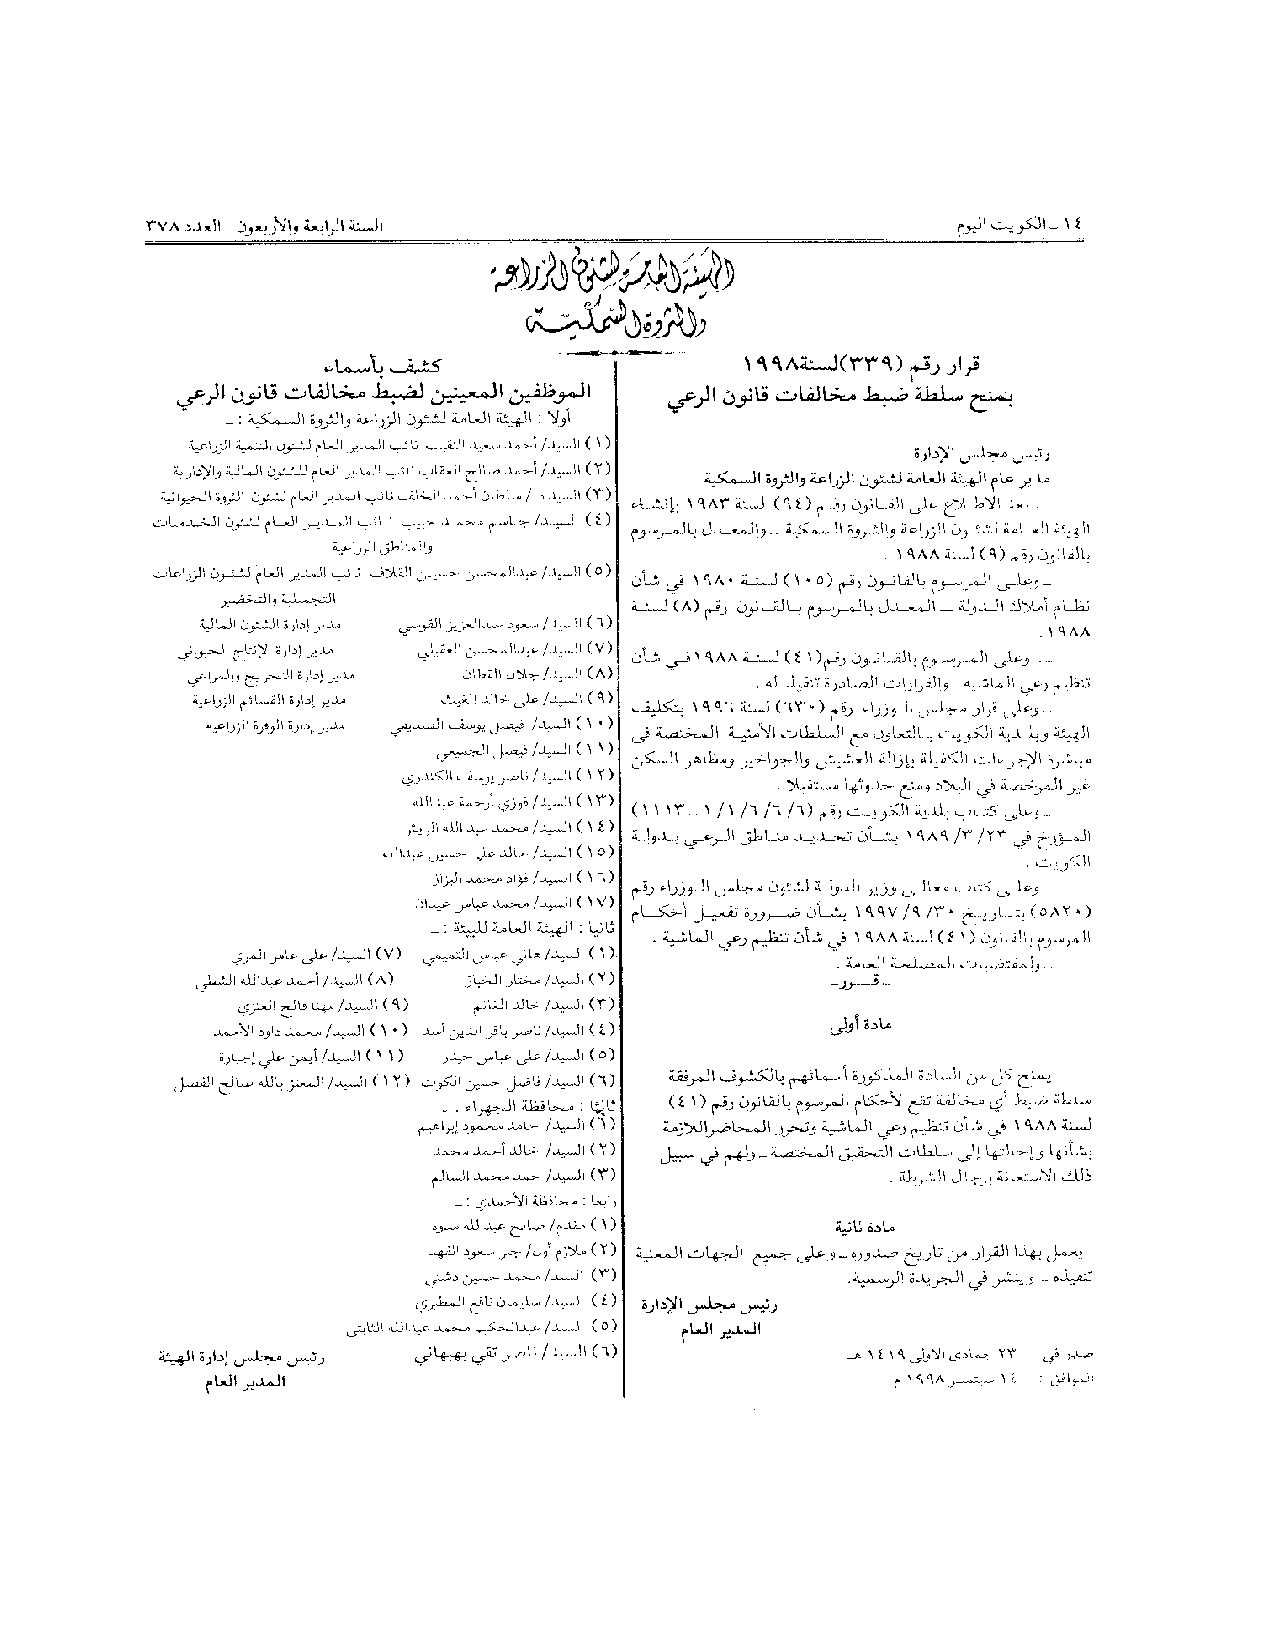 ١٤ - الكويت اليوم
السنة الرابعة والأربعون العدد ٣٧٨
الهيئة العامة لشئون الزراعة
والثروة السمكية
قرار رقم (٣٣٩) لسنة ١٩٩٨
بمنح سلطة ضبط مخالفات قانون الرعي
رئيس مجلس الإدارة
مدير عام الهيئة العامة لشئون الزراعة والثروة السمكية
- بعد الاطلاع على القانون رقم (٩٤) لسنة ١٩٨٣ بإنشاء
الهيئة العامة لشئون الزراعة والثروة السمكية - والمعدل بالمرسوم
بالقانون رقم (٩) لسنة ١٩٨٨ .
- وعلى المرسوم بالقانون رقم (١٠٥) لسنة ١٩٨٠ في شأن
نظام أملاك الدولة - المعدل بالمرسوم بالقانون رقم (٨) لسنة
١٩٨٨ .
- وعلى المرسوم بالقانون رقم (٤١) لسنة ١٩٨٨ في شأن
تنظيم رعي الماشية والقرارات الصادرة تنفيذا له .
- وعلى قرار مجلس الوزراء رقم (٦٣٠) لسنة ١٩٩٦ بتكليف
الهيئة وبلدية الكويت بالتعاون مع السلطات الأمنية المختصة في
مباشرة الإجراءات الكفيلة بإزالة العشيش والجواخير ومظاهر السكن
غير المرخصة في البلاد ومنع حدوثها مستقبلا .
- وعلى كتاب بلدية الكويت رقم (٦/٦/٦/١/١ .. ١١١٣)
المؤرخ في ٢٣/٣/١٩٨٩ بشأن تحديد مناطق الرعي بدولة
الكويت .
وعلى كتاب معالي وزير الدولة لشئون مجلس الوزراء رقم
(٥٨٢٠) بتاريخ ٣٠/٩/١٩٩٧ بشأن ضرورة تفعيل أحكام
المرسوم بالقانون (٤١) لسنة ١٩٨٨ في شأن تنظيم رعي الماشية .
- ولمقتضيات المصلحة العامة .
- قرر -
مادة أولى
يمنح كل من السادة المذكورة أسمائهم بالكشوف المرفقة
سلطة ضبط أي مخالفة تقع لأحكام المرسوم بالقانون رقم (٤١)
لسنة ١٩٨٨ في شأن تنظيم رعي الماشية وتحرر المحاضر اللازمة
بشأنها وإحالتها إلى سلطات التحقيق المختصة - ولهم في سبيل
ذلك الاستعانة برجال الشرطة .
مادة ثانية
يعمل بهذا القرار من تاريخ صدوره - وعلى جميع الجهات المعنية
تنفيذه - وينشر في الجريدة الرسمية .
رئيس مجلس الإدارة
المدير العام
صدر في ٢٣ جمادى الاولى ١٤١٩ هـ
الموافق : ١٤ سبتمبر ١٩٩٨ م
كشف بأسماء
الموظفين المعينين لضبط مخالفات قانون الرعي
أولا : الهيئة العامة لشئون الزراعة والثروة السمكية : -
(١) السيد/ أحمد سعيد النقيب نائب المدير العام لشئون التنمية الزراعية
(٢) السيد/ أحمد صالح العقاب نائب المدير العام للشئون المالية والإدارية
(٣) السيد/ سلطان أحمد الخلف نائب المدير العام لشئون الثروة الحيوانية
(٤) السيد/ جاسم محمد حبيب نائب المدير العام لشئون الخدمات
والمناطق الزراعية
(٥) السيد/ عبدالمحسن حسين القلاف نائب المدير العام لشئون الزراعات
التجميلية والتخضير
(٦) السيد/ سعود عبدالعزيز القوسي مدير إدارة الشئون المالية
(٧) السيد/ عبدالمحسن العقيلي مدير إدارة الإنتاج الحيواني
(٨) السيد/ جلال القطان مدير إدارة التحريج والمراعي
(٩) السيد/ على خالد الغيث مدير إدارة القسائم الزراعية
(١٠) السيد/ فيصل يوسف السديعي مدير إدارة الوفرة الزراعية
(١١) السيد/ فيصل الجسيمي
(١٢) السيد/ ناصر يوسف الكندري
(١٣) السيد/ فوزي أرحمة عبدالله
(١٤) السيد/ محمد عبدالله
(١٥) السيد/ خالد على حسين عبدالله
(١٦) السيد/ فؤاد محمد البزاز
(١٧) السيد/ محمد عباس عبدان
ثانيا : الهيئة العامة للبيئة : -
(١) السيد/ هاني عباس التميمي (٧) السيد/ على عامر المري
(٢) السيد/ مختار الخباز (٨) السيد/ أحمد عبدالله الشطي
(٣) السيد/ خالد الغانم (٩) السيد/ مهنا فالح العنزي
(٤) السيد/ ناصر باقر الدين أسد (١٠) السيد/ محمد داود الأحمد
(٥) السيد/ على عباس حيدر (١١) السيد/ أيمن على إجبارة
(٦) السيد/ فاضل حسين الكوت (١٢) السيد/ المعتز بالله صالح الفصل
ثالثا : محافظة الجهراء : -
(١) السيد/ حامد محمود إبراهيم
(٢) السيد/ خالد أحمد محمد
(٣) السيد/ حمد محمد السالم
رابعا : محافظة الأحمدي : -
(١) مقدم/ صالح عبدالله
(٢) ملازم أول/ سعود الفهد
(٣) السيد/ محمد حسين دشتي
(٤) السيد/ سليمان نافع المطيري
(٥) السيد/ عبدالحكيم محمد عبدالله
(٦) السيد/ ناصر تقي بهبهاني
رئيس مجلس إدارة الهيئة
المدير العام